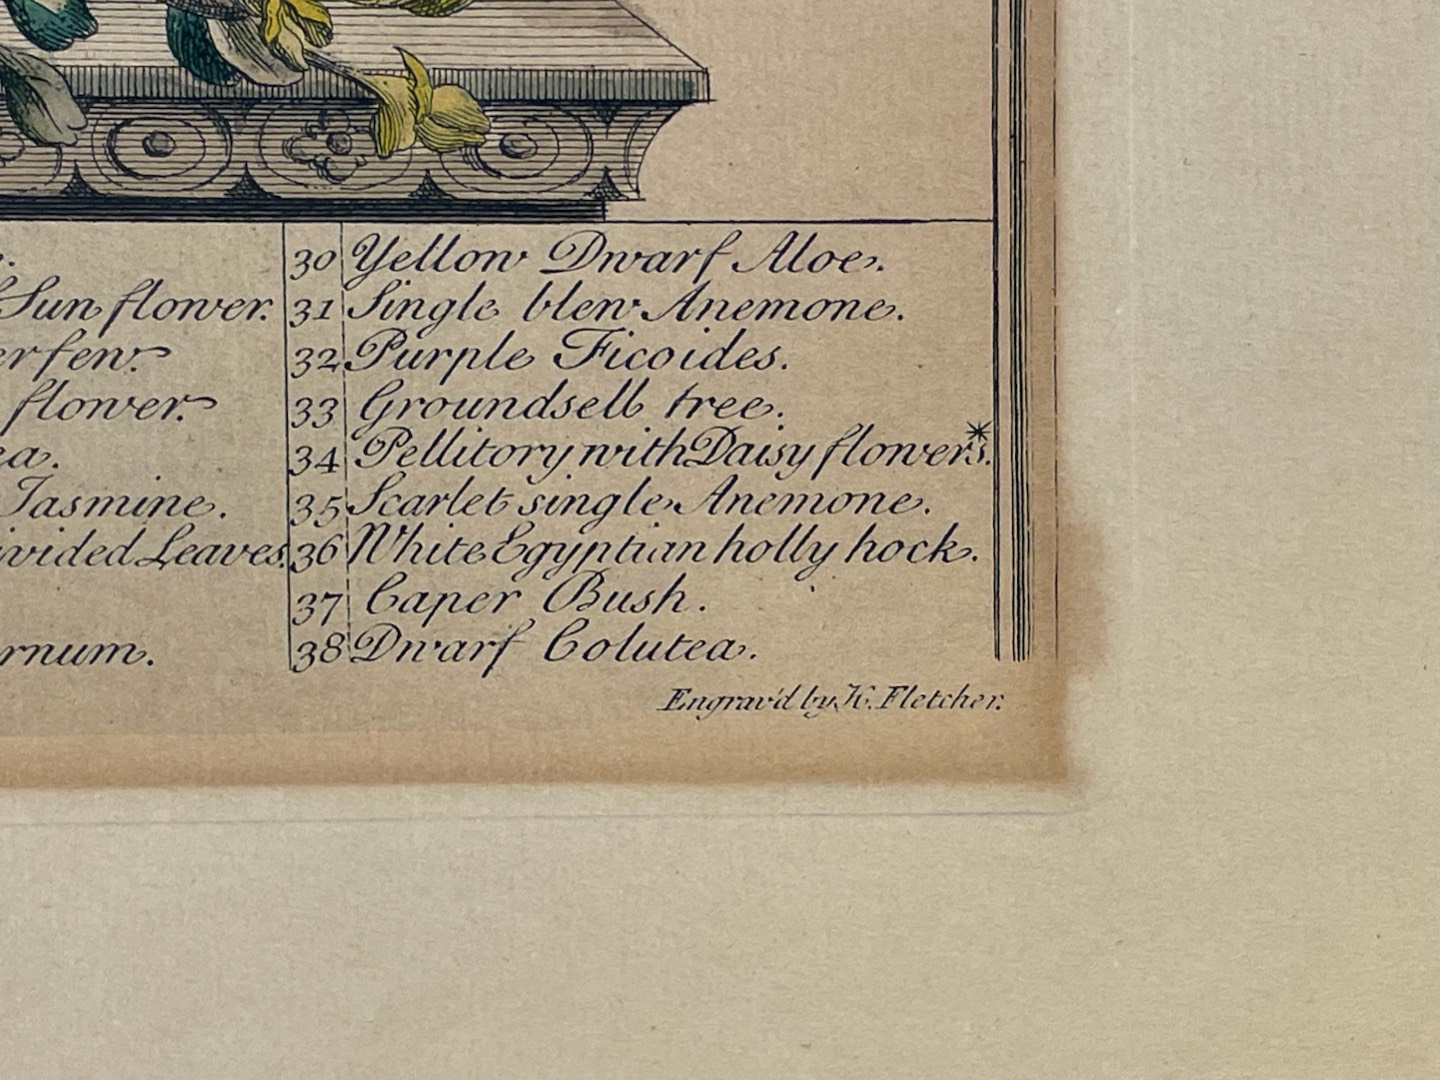 Sun flower. 31 Single blew Anemone.
30 Yellow Dwarf Aloe.
erfew. 32 Purple Ficoides.
flower. 33 Groundsell tree.
ea. 34 Pellitory with Daisy flowers.*
Jasmine. 35 Scarlet single Anemone.
ivided Leaves. 36 White Egyptian holly hock.
37 Caper Bush.
rnum. 38 Dwarf Colutea.
Engrav'd by H. Fletcher.